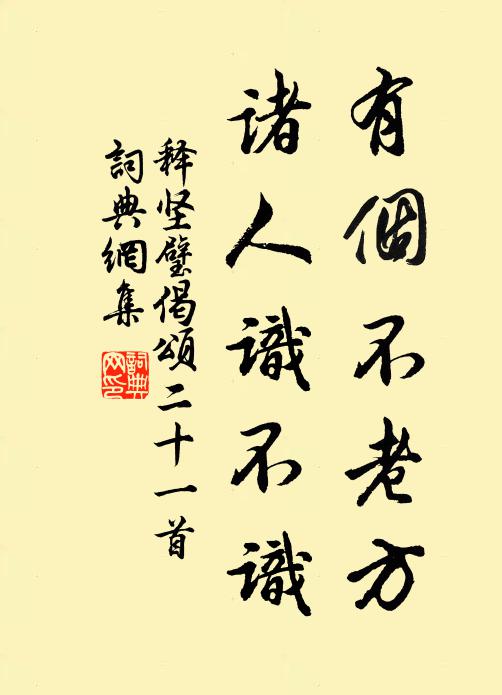 有個不老方
諸人識不識
释坚璧偈頌二十一首
詞典網集
詞典網印